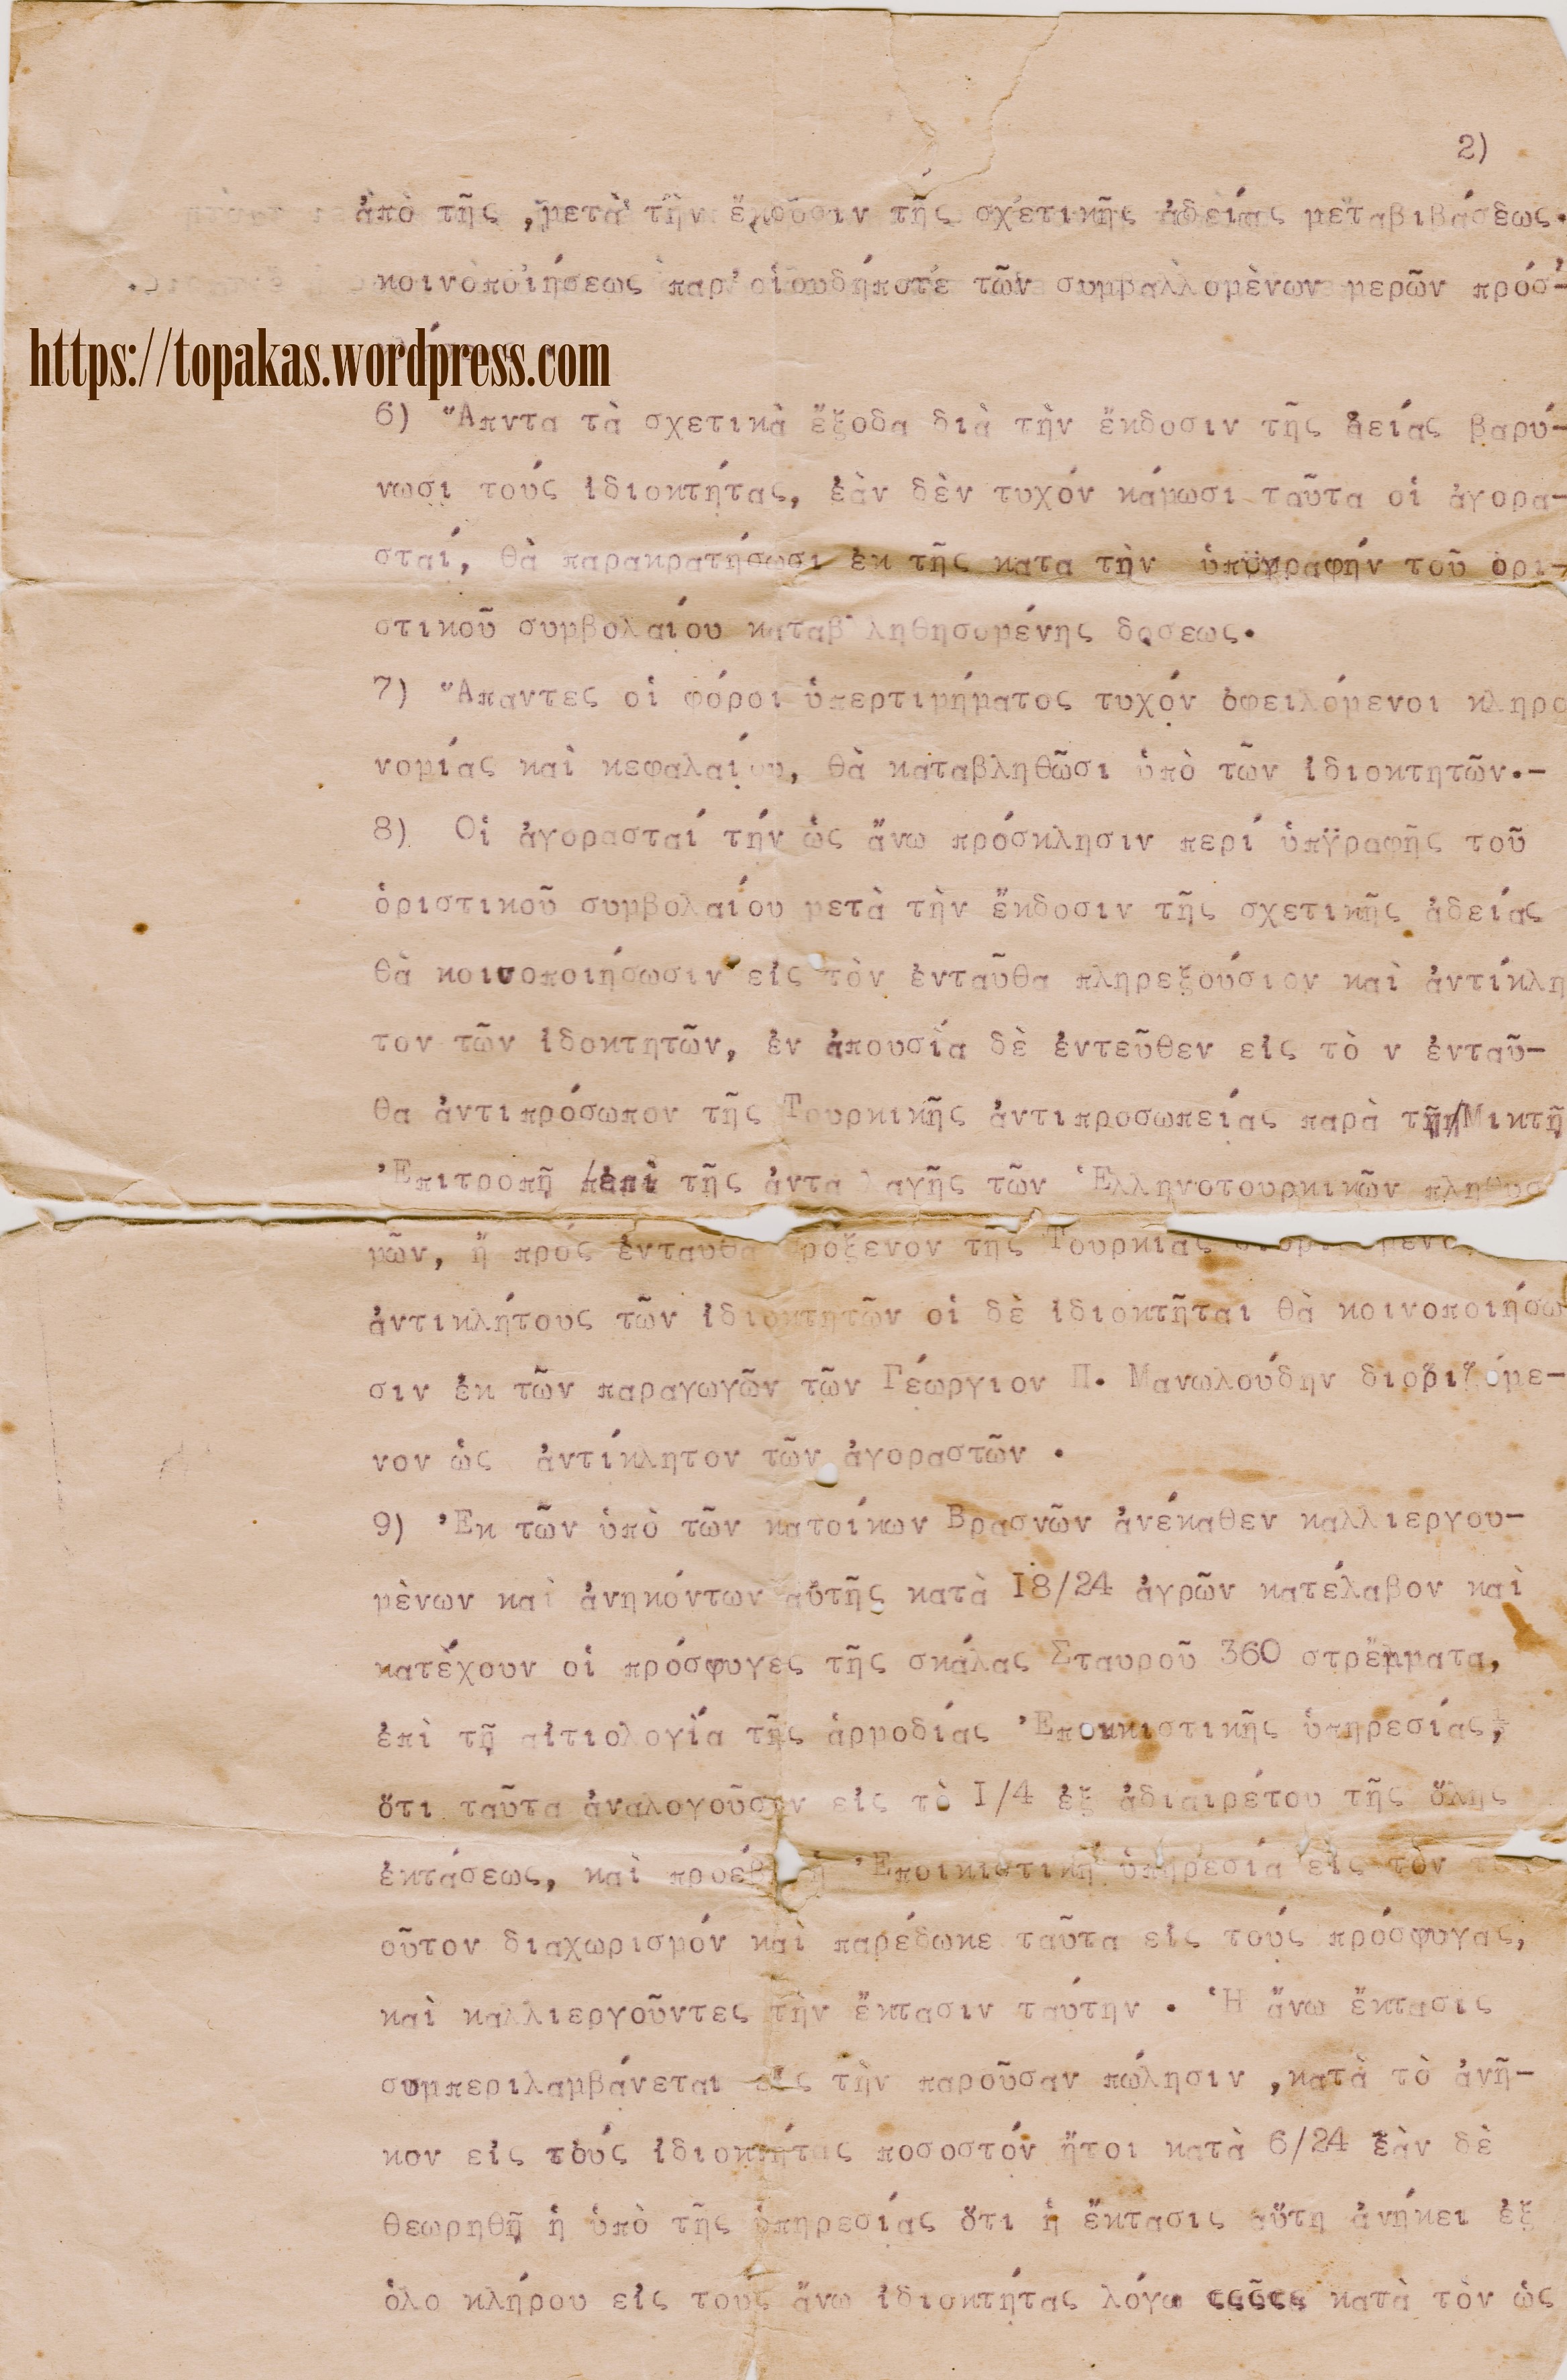 2)
ἀπὸ τῆς , μετὰ τὴν ἔκδοσιν τῆς σχετικῆς ἀδείας μεταβιβάσεως.
κοινοποιήσεως παρ' οἱουδήποτε τῶν συμβαλλομὲνων μερῶν πρόσ-
https://topakas.wordpress.com
6) Ἅπντα τὰ σχετικὰ ἔξοδα διὰ τὴν ἔκδοσιν τῆς ἀείας βαρύ-
νωσι τούς ἰδιοκτήτας, ἐὰν δὲν τυχόν κάμωσι ταῦτα οἱ ἀγορα-
σταί, θὰ παρακρατήσωσι ἐκ τῆς κατα τὴν ὑπογραφήν τοῦ ὁρι-
στικοῦ συμβολαίου καταβληθησομένης δοσεως.
7) Ἅπαντες οἱ φόροι ὑπερτιμήματος τυχόν ὀφειλόμενοι κληρο
νομίας καὶ κεφαλαίου, θὰ καταβληθῶσι ὑπὸ τῶν ἰδιοκτητῶν.-
8) Οἱ ἀγορασταί τήν ὡς ἄνω πρόσκλησιν περί ὑπγραφῆς τοῦ
ὁριστικοῦ συμβολαίου μετὰ τὴν ἔκδοσιν τῆς σχετικῆς ἀδείας
θὰ κοινοποιήσωσιν εἰς τὸν ἐνταῦθα πληρεξούσιον καὶ ἀντίκλη
τον τῶν ἰδοκτητῶν, ἐν ἀπουσία δὲ ἐντεῦθεν εἰς τὸ ν ἐνταῦ-
θα ἀντιπρόσωπον τῆς Τουρκικῆς ἀντιπροσωπείας παρὰ τῇ Μικτῇ
Ἐπιτροπῇ ἐπὶ τῆς ἀνταλαγῆς τῶν Ἑλληνοτουρκικῶν πληθυσ
μῶν, ἤ πρός ἐνταυθα πρόξενον τῆς Τουρκίας
ἀντικλήτους τῶν ἰδιοκτητῶν οἱ δὲ ἰδιοκτῆται θὰ κοινοποιήσω
σιν ἐκ τῶν παραγωγῶν τῶν Γεώργιον Π. Μανωλούδην διοριζόμε-
νον ὡς ἀντίκλητον τῶν ἀγοραστῶν .
9) Ἐκ τῶν ὑπὸ τῶν κατοίκων Βρασνῶν ἀνέκαθεν καλλιεργου-
μὲνων καὶ ἀνηκόντων αὐτῆς κατὰ I8/24 ἀγρῶν κατέλαβον καὶ
κατέχουν οἱ πρόσφυγες τῆς σκάλας Σταυροῦ 360 στρέμματα,
ἐπὶ τῇ αἰτιολογία τῆς ἁρμοδίας Ἐποικιστικῆς ὑπηρεσίας,
ὅτι ταῦτα ἀναλογοῦσιν εἰς τὸ I/4 ἐξ ἀδιαιρέτου τῆς ὅλης
ἐκτάσεως, καὶ προέβη ἡ Ἐποικιστικὴ ὑπηρεσία εἰς τὸν τοι
οῦτον διαχωρισμόν καὶ παρέδωκε ταῦτα εἰς τούς πρόσφυγας,
καὶ καλλιεργοῦντες τὴν ἔκτασιν ταύτην . Ἡ ἄνω ἔκτασις
συμπεριλαμβάνεται εἰς τὴν παροῦσαν πώλησιν ,κατὰ τὸ ἀνῆ-
κον εἰς τούς ἰδιοκτήτας ποσοστόν ἤτοι κατὰ 6/24 ἐὰν δὲ
θεωρηθῇ ἡ ὑπὸ τῆς ὑπηρεσίας ὅτι ἡ ἔκτασις αὕτη ἀνήκει ἐξ
ὁλο κλήρου εἰς τούς ἄνω ἰδιοκτήτας λόγω κατὰ τὸν ὡς